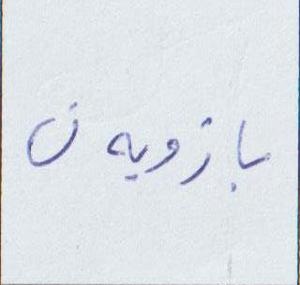 بازویه ن